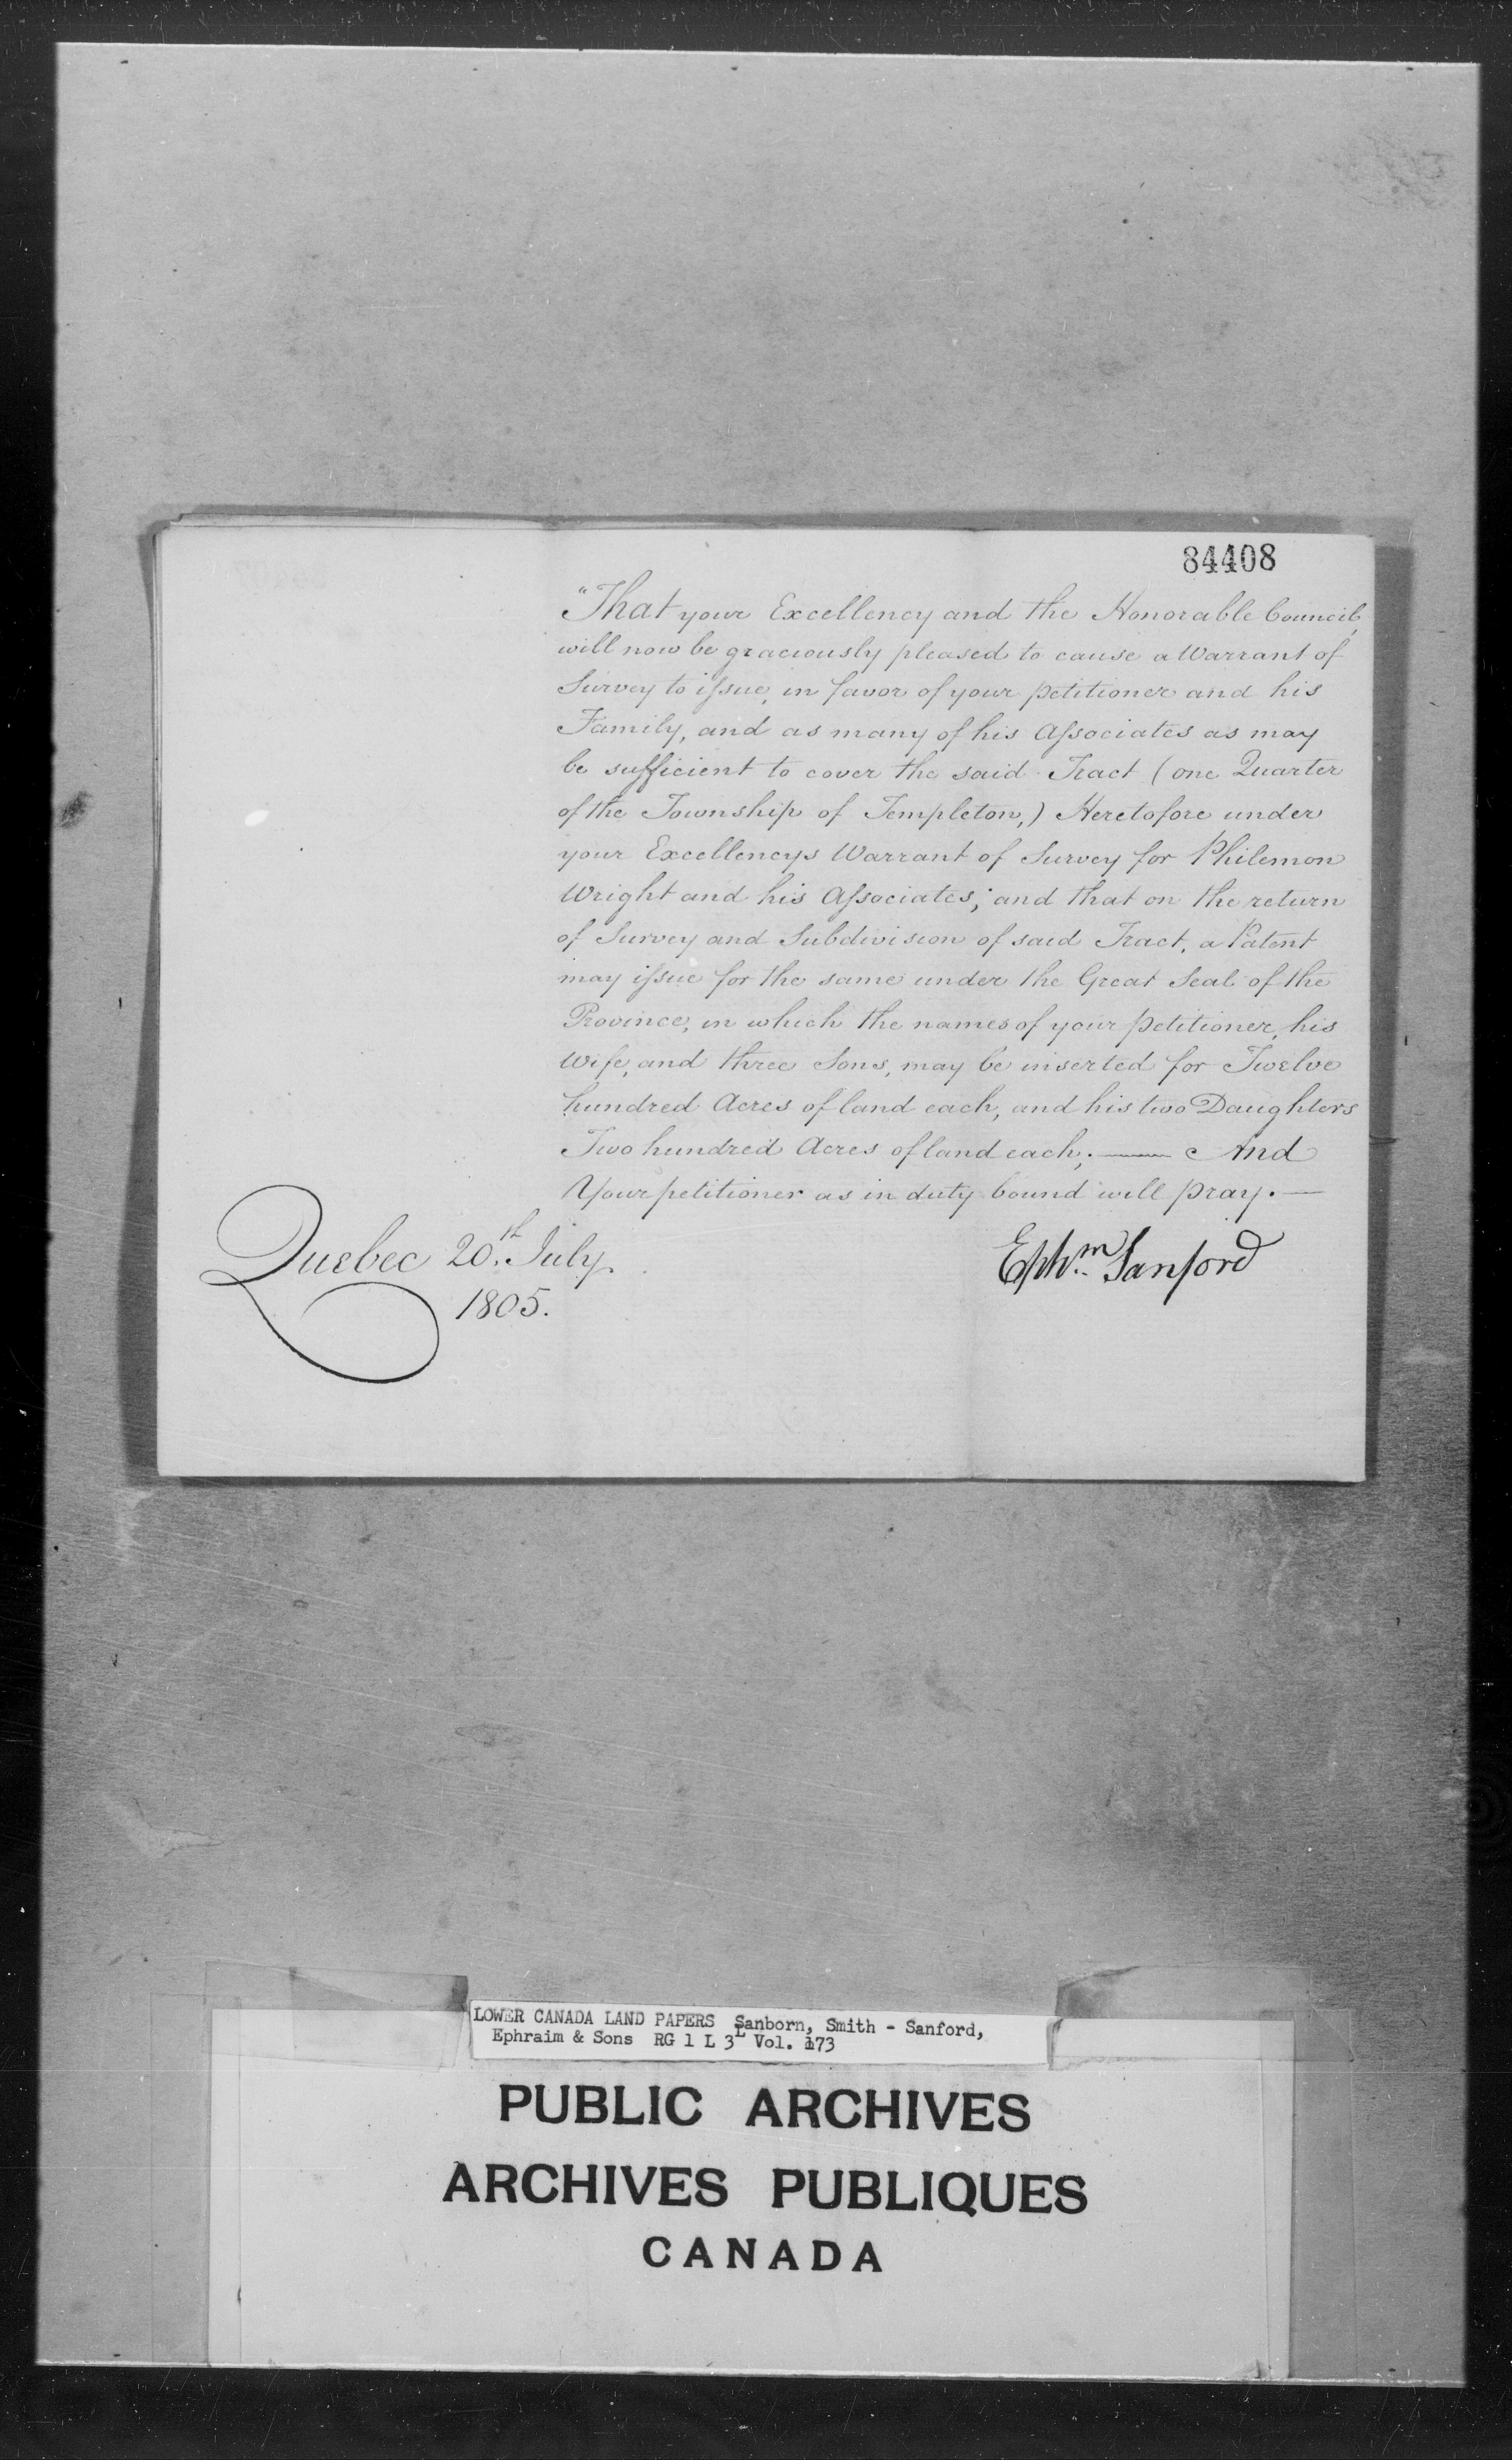 84408
"That your Excellency and the Honorable Council,
will now be graciously pleased to cause a Warrant of
Survey to ifsue, in favor of your petitioner and his
Family, and as many of his Afsociates as may
be sufficient to cover the said Tract (one Quarter
of the Township of Templeton,) Heretofore under
your Excellencys Warrant of Survey for Philemon
Wright and his Afsociates; and that on the return
of Survey and Subdivision of said Tract, a Patent
may ifsue for the same under the Great Seal of the
Province, in which the names of your petitioner, his
Wife, and three Sons, may be inserted for Twelve
hundred Acres of land each, and his two Daughters
Two hundred Acres of land each; —— And
Your petitioner as in duty bound will pray. —
Quebec 20th July
1805.
Ephm Sanford
LOWER CANADA LAND PAPERS Sanborn, Smith - Sanford,
Ephraim & Sons RG 1 L 3L Vol. 173
PUBLIC ARCHIVES
ARCHIVES PUBLIQUES
CANADA